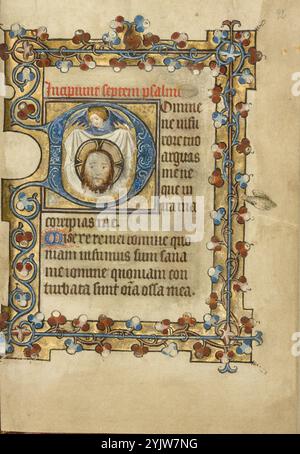 Incipiunt septem psalmi
Domine
ne in fu
rore tuo
arguas
me ne
que in
ira tua
corripias me.
Miserere mei domine quo
niam infirmus sum sana
me domine quoniam con
turbata sunt o͞ia ossa mea.
alamy
Image ID: 2YJW7NG
www.alamy.com